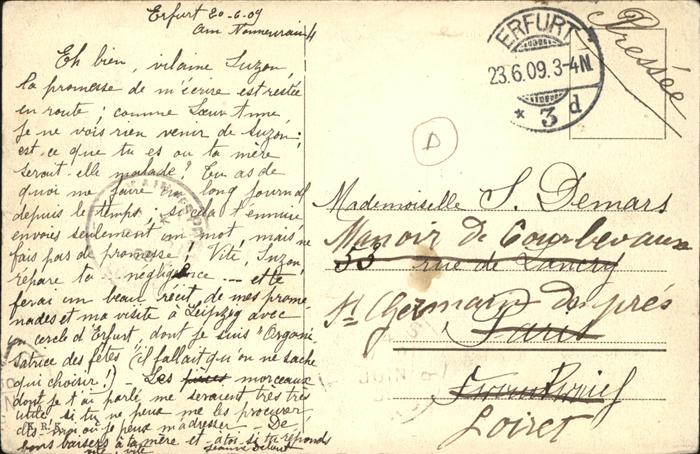 Erfurt 20-6-09
am
Eh bien, vilaine Suzon,
la promesse de m'écrire est restée
en route; comme Sœur Anne,
je ne vois rien venir de Suzon;
est-ce que tu es ou ta mère
serait-elle malade? Tu as de
quoi me faire un long journal
depuis le temps; si cela t'ennuie
envoies seulement un mot, mais ne
fais pas de promesse! Vite, Suzon,
répare ta négligence ... et te
ferai un beau récit de mes prome-
nades et ma visite à Leipzig avec
un cercle d'Erfurt, dont je suis "Organi-
satrice des fêtes" (il fallait qu'on ne sache
qui choisir!) Les pièces morceaux
dont je t'ai parlé, me seraient très très
utile si tu ne peux me les procurer
dis-moi où je peux m'adresser - De
bons baisers à ta mère et à toi si tu réponds
vite
ERFURT
23.6.09. 3-4N.
* 3 d
Pressée
D
Mademoiselle S. Demars
Manoir de Courbevaux
33 rue de Lancry
St Germain des prés
Paris
Loiret